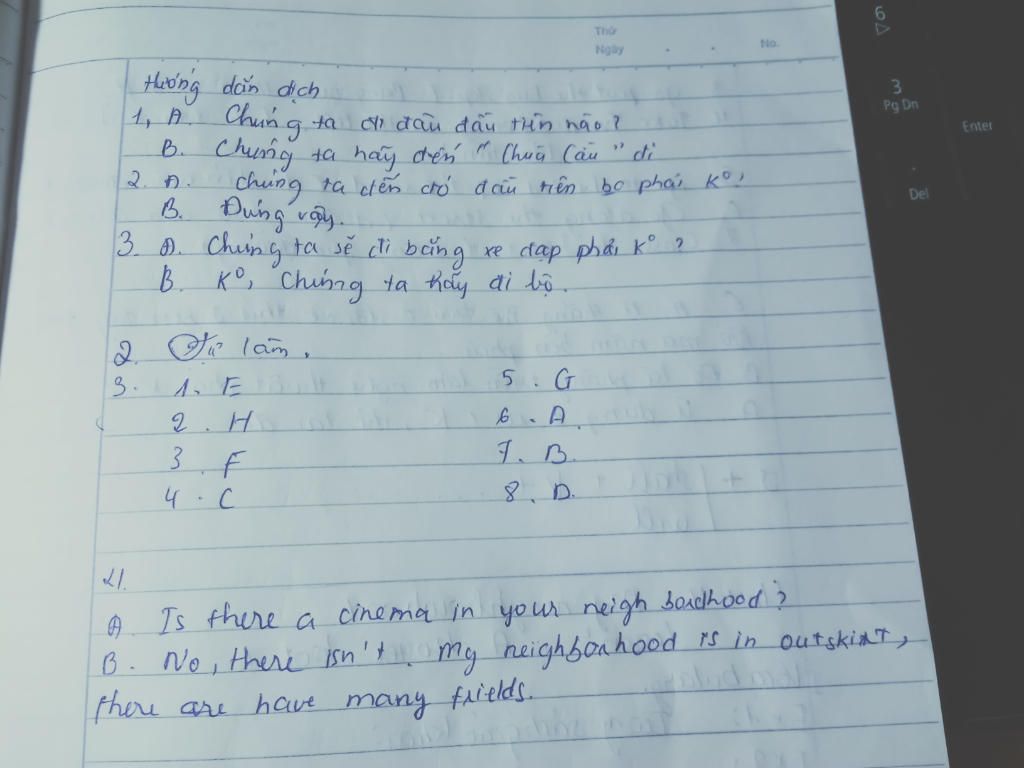 Thứ
Ngày . . No.
Hướng dẫn dịch
1, A. Chúng ta đi đâu đầu tiên nào?
B. Chúng ta hãy đến "Chùa Cầu" đi
2. A. Chúng ta đến đó đầu tiên bo phải K°?
B. Đúng vậy.
3. A. Chúng ta sẽ đi bằng xe đạp phải K°?
B. K°, Chúng ta hãy đi bộ.
2. Tự làm.
3. 1. E 5. G
2. H 6. A.
3. F 7. B.
4. C 8. D.
4.
A Is there a cinema in your neigh boadhood?
B. No, there isn't. My neighboahood is in outskirt,
there are have many frields.
6
3
Pg Dn
Enter
.
Del